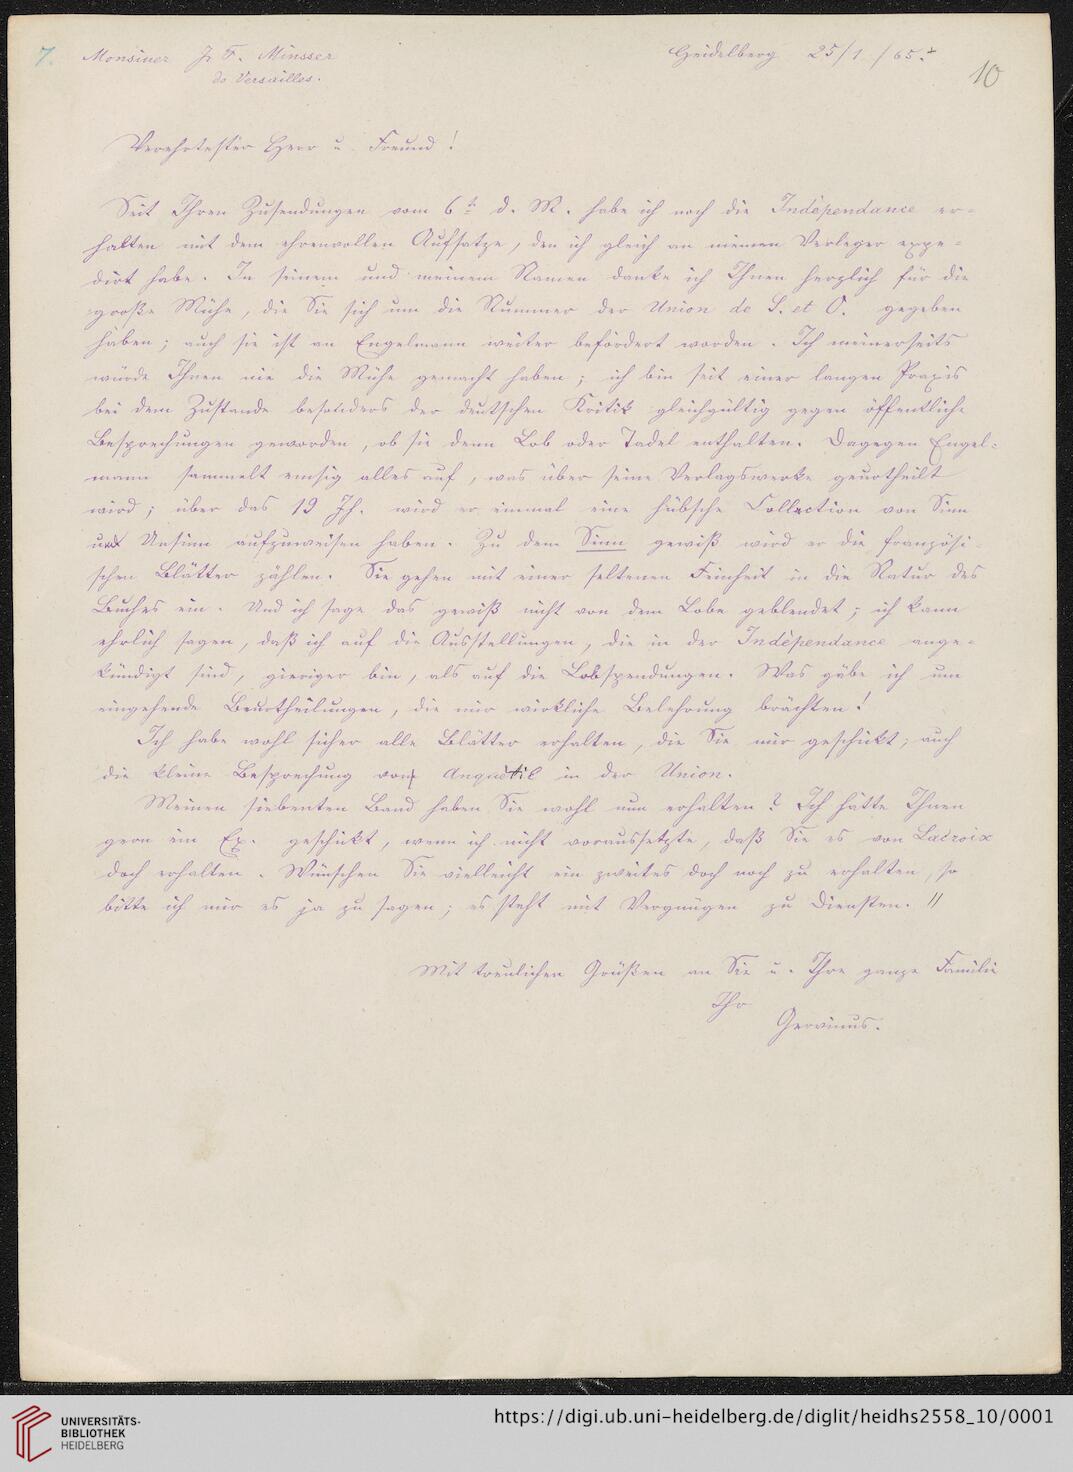 7. Monsieur J. F. Minssen
de Versailles.
Heidelberg 25/1/65.
10
Verehrtester Herr u. Freund!
Seit Ihren Zusendungen vom 6t d. M. habe ich noch die Indépendance er-
halten mit dem ehrenvollen Aufsatze, den ich gleich an meinen Verleger expe-
dirt habe. In seinem und meinem Namen danke ich Ihnen herzlich für die
große Mühe, die Sie sich um die Nummer der Union de S. et O. gegeben
haben; auch sie ist an Engelmann weiter befördert worden. Ich meinerseits
würde Ihnen nie die Mühe gemacht haben; ich bin seit einer langen Praxis
bei dem Zustande besonders der deutschen Kritik gleichgültig gegen öffentliche
Besprechungen geworden, ob sie denn Lob oder Tadel enthalten. Dagegen Engel-
mann sammelt emsig alles auf, was über seine Verlagswerke geurtheilt
wird; über das 19 Jh. wird er einmal eine hübsche Collection von Sinn
und Unsinn aufzuweisen haben. Zu dem Sinn gewiß wird er die französi-
schen Blätter zählen. Sie gehen mit einer seltenen Feinheit in die Natur des
Buches ein. Und ich sage das gewiß nicht von dem Lobe geblendet; ich kann
ehrlich sagen, daß ich auf die Ausstellungen, die in der Indépendance ange-
kündigt sind, gieriger bin, als auf die Lobspendungen. Was gäbe ich um
eingehende Beurtheilungen, die mir wirkliche Belehrung brächten!
Ich habe wohl sicher alle Blätter erhalten, die Sie mir geschickt; auch
die kleine Besprechung von Anquetil in der Union.
Meinen siebenten Band haben Sie wohl nun erhalten? Ich hätte Ihnen
gern ein Ex. geschickt, wenn ich nicht voraussetzte, daß Sie es von Lacroix
doch erhalten. Wünschen Sie vielleicht ein zweites doch noch zu erhalten, so
bitte ich mir es ja zu sagen; es steht mit Vergnügen zu Diensten. //
Mit treulichen Grüßen an Sie u. Ihre ganze Familie
Ihr
Gervinus.
UNIVERSITÄTS-
BIBLIOTHEK
HEIDELBERG
https://digi.ub.uni-heidelberg.de/diglit/heidhs2558_10/0001